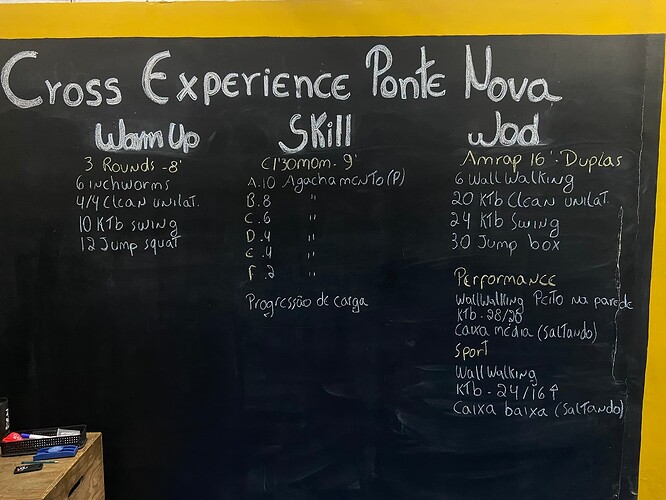 Cross Experience Ponte Nova
Warm Up
3 Rounds - 8'
6 inchworms
4/4 Clean unilat.
10 KTb swing
12 Jump squat
Skill
C1'30MOM - 9'
A. 10 Agachamento (P)
B. 8 "
C. 6 "
D. 4 "
E. 4 "
F. 2 "
Progressão de carga
Wod
Amrap 16' - Duplas
6 Wall Walking
20 KTb Clean Unilat.
24 KTb Swing
30 Jump box
Performance
WallWalking Peito na parede
KTb - 28/20
Caixa média (Saltando)
Sport
Wall Walking
KTb - 24/16 ↑
Caixa baixa (Saltando)